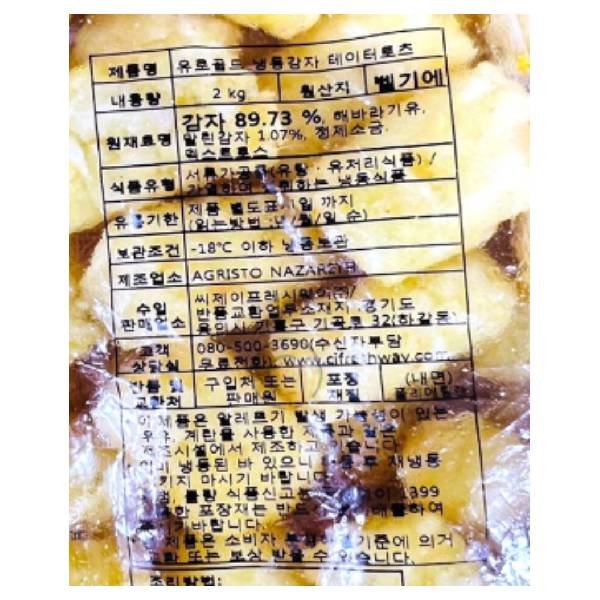 제품명 유로골드 냉동감자 테이터토츠
내용량 2 kg 원산지 벨기에
원재료명 감자 89.73 %, 해바라기유,
말린감자 1.07%, 정제소금,
덱스트로스
식품유형 서류가공품(유탕·유처리식품) /
가열하여 냉동식품
유통기한 제품 별도표 일 까지
(읽는방법 : 년/월/일 순)
보관조건 -18℃ 이하 냉동보관
제조업소 AGRISTO NAZARETH
수입 판매업소 씨제이프레시웨이㈜/
반품교환업무소재지 경기도
용인시 기흥구 기곡로 32(하갈동)
고객 상담실 080-500-3690(수신자부담
무료전화), www.cjfreshway.com
반품 및 교환처 구입처 또는 판매원 포장 재질 (내면)
폴리에틸렌
이 제품은 알레르기 발생 가능성이 있는
우유, 계란을 사용한 제품과 같은
제조시설에서 제조하고 있습니다
이미 냉동된 바 있으니 해동 후 재냉동
시키지 마시기 바랍니다.
불량 식품신고는 1399
포장재는 반드시 배출하여
주시기바랍니다.
제품은 소비자 분쟁해결기준에 의거
교환 또는 보상 받을 수 있습니다.
조리방법: